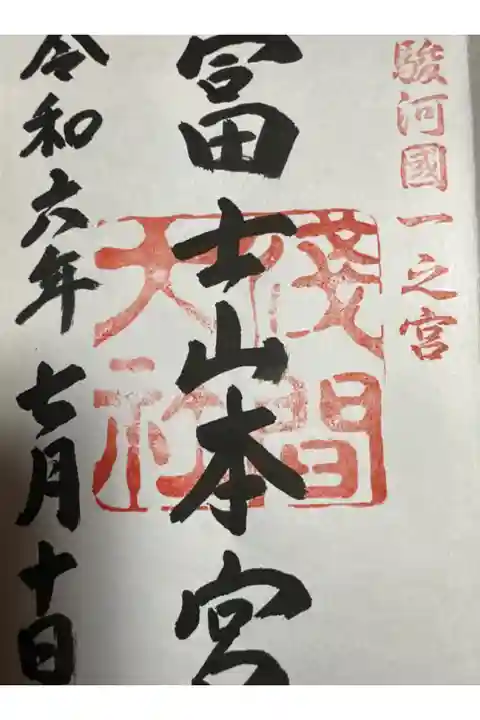 駿河國一之宮
富士山本宮
浅間
大社
令和六年七月十日